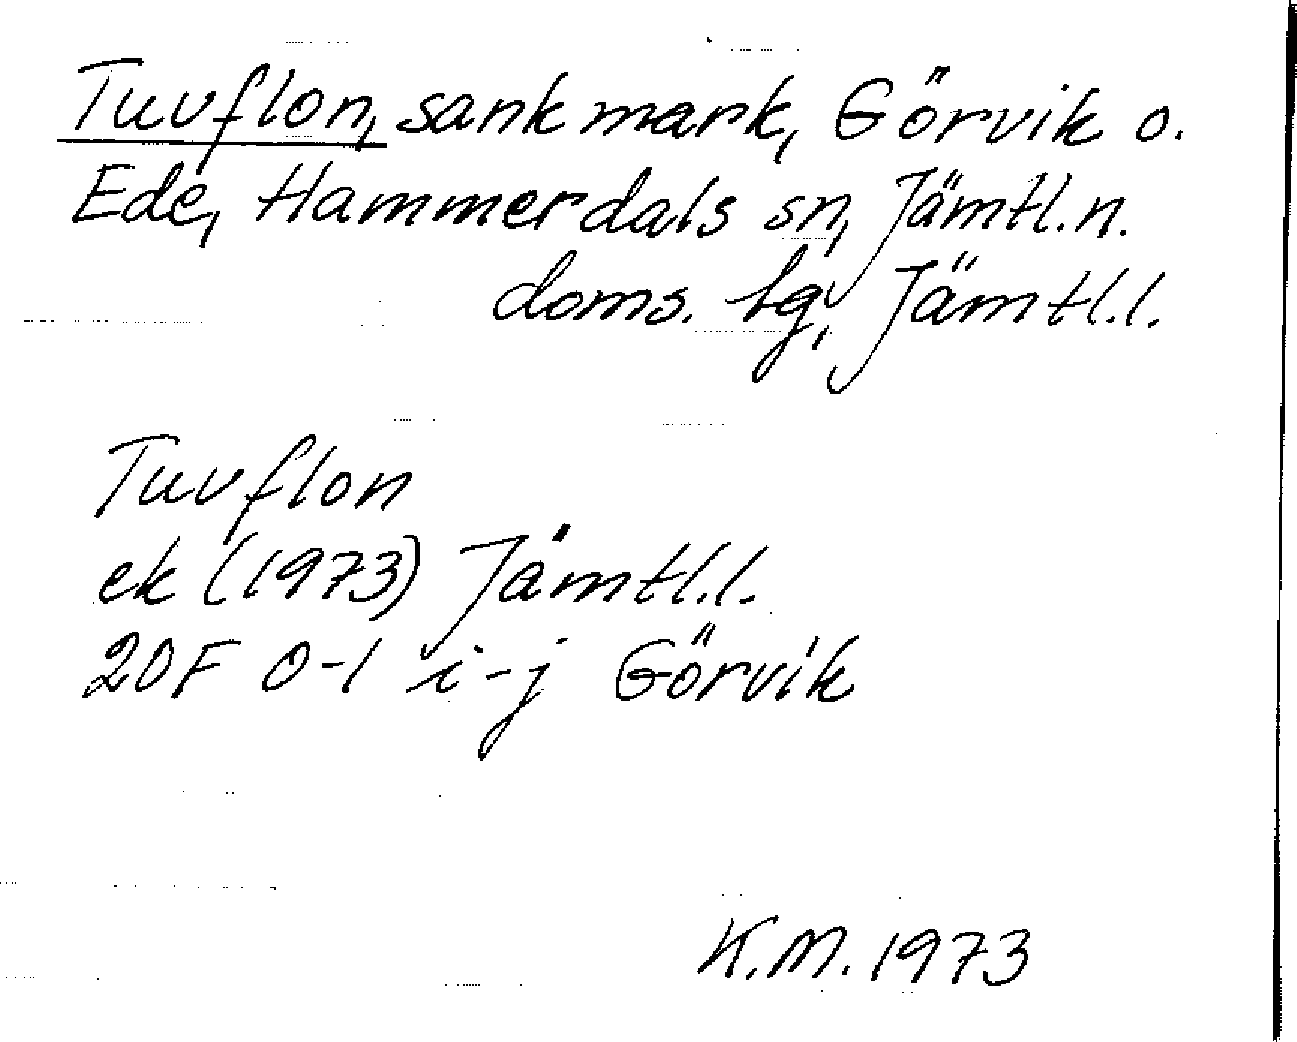 Tuvflon, sank mark, Görvik o.
Ede, Hammerdals sn, Jämtl.n.
doms. tg, Jämtl.l.
Tuvflon
ek (1973) Jämtl.l.
20F 0-1 i-j Görvik
K.M. 1973